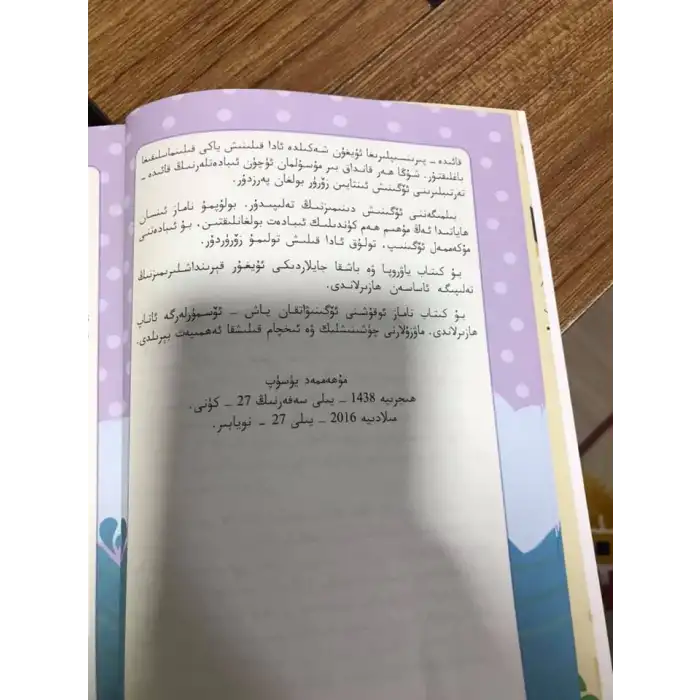 قائىدە ـ پىرىنسىپلىرىغا ئۇيغۇن شەكىلدە ئادا قىلىنىش ياكى قىلىنماسلىقىغا
باغلىقتۇر. شۇڭا ھەر قانداق بىر مۇسۇلمان ئۈچۈن ئىبادەتلەرنىڭ قائىدە ـ
تەرتىپلىرىنى ئۆگىنىش ئىنتايىن زۆرۈر بولغان پەرزدۇر.
بىلمىگەننى ئۆگىنىش دىنىمىزنىڭ تەلىپىدۇر. بولۇپمۇ ناماز ئىنسان
ھاياتىدا ئەڭ مۇھىم ھەم كۈندىلىك ئىبادەت بولغانلىقتىن، بۇ ئىبادەتنى
مۇكەممەل ئۆگىنىپ، تولۇق ئادا قىلىش تولىمۇ زۆرۈردۇر.
بۇ كىتاب ياۋروپا ۋە باشقا جايلاردىكى ئۇيغۇر قېرىنداشلىرىمىزنىڭ
تەلىپىگە ئاساسەن ھازىرلاندى.
بۇ كىتاب ناماز ئوقۇشنى ئۆگىنىۋاتقان ياش ـ ئۆسمۈرلەرگە ئاتاپ
ھازىرلاندى. ماۋزۇلارنى چۈشىنىشلىك ۋە ئىخچام قىلىشقا ئەھمىيەت بېرىلدى.
مۇھەممەد يۈسۈپ
ھىجرىيە 1438 ـ يىلى سەفەرنىڭ 27 ـ كۈنى.
مىلادىيە 2016 ـ يىلى 27 ـ نويابىر.